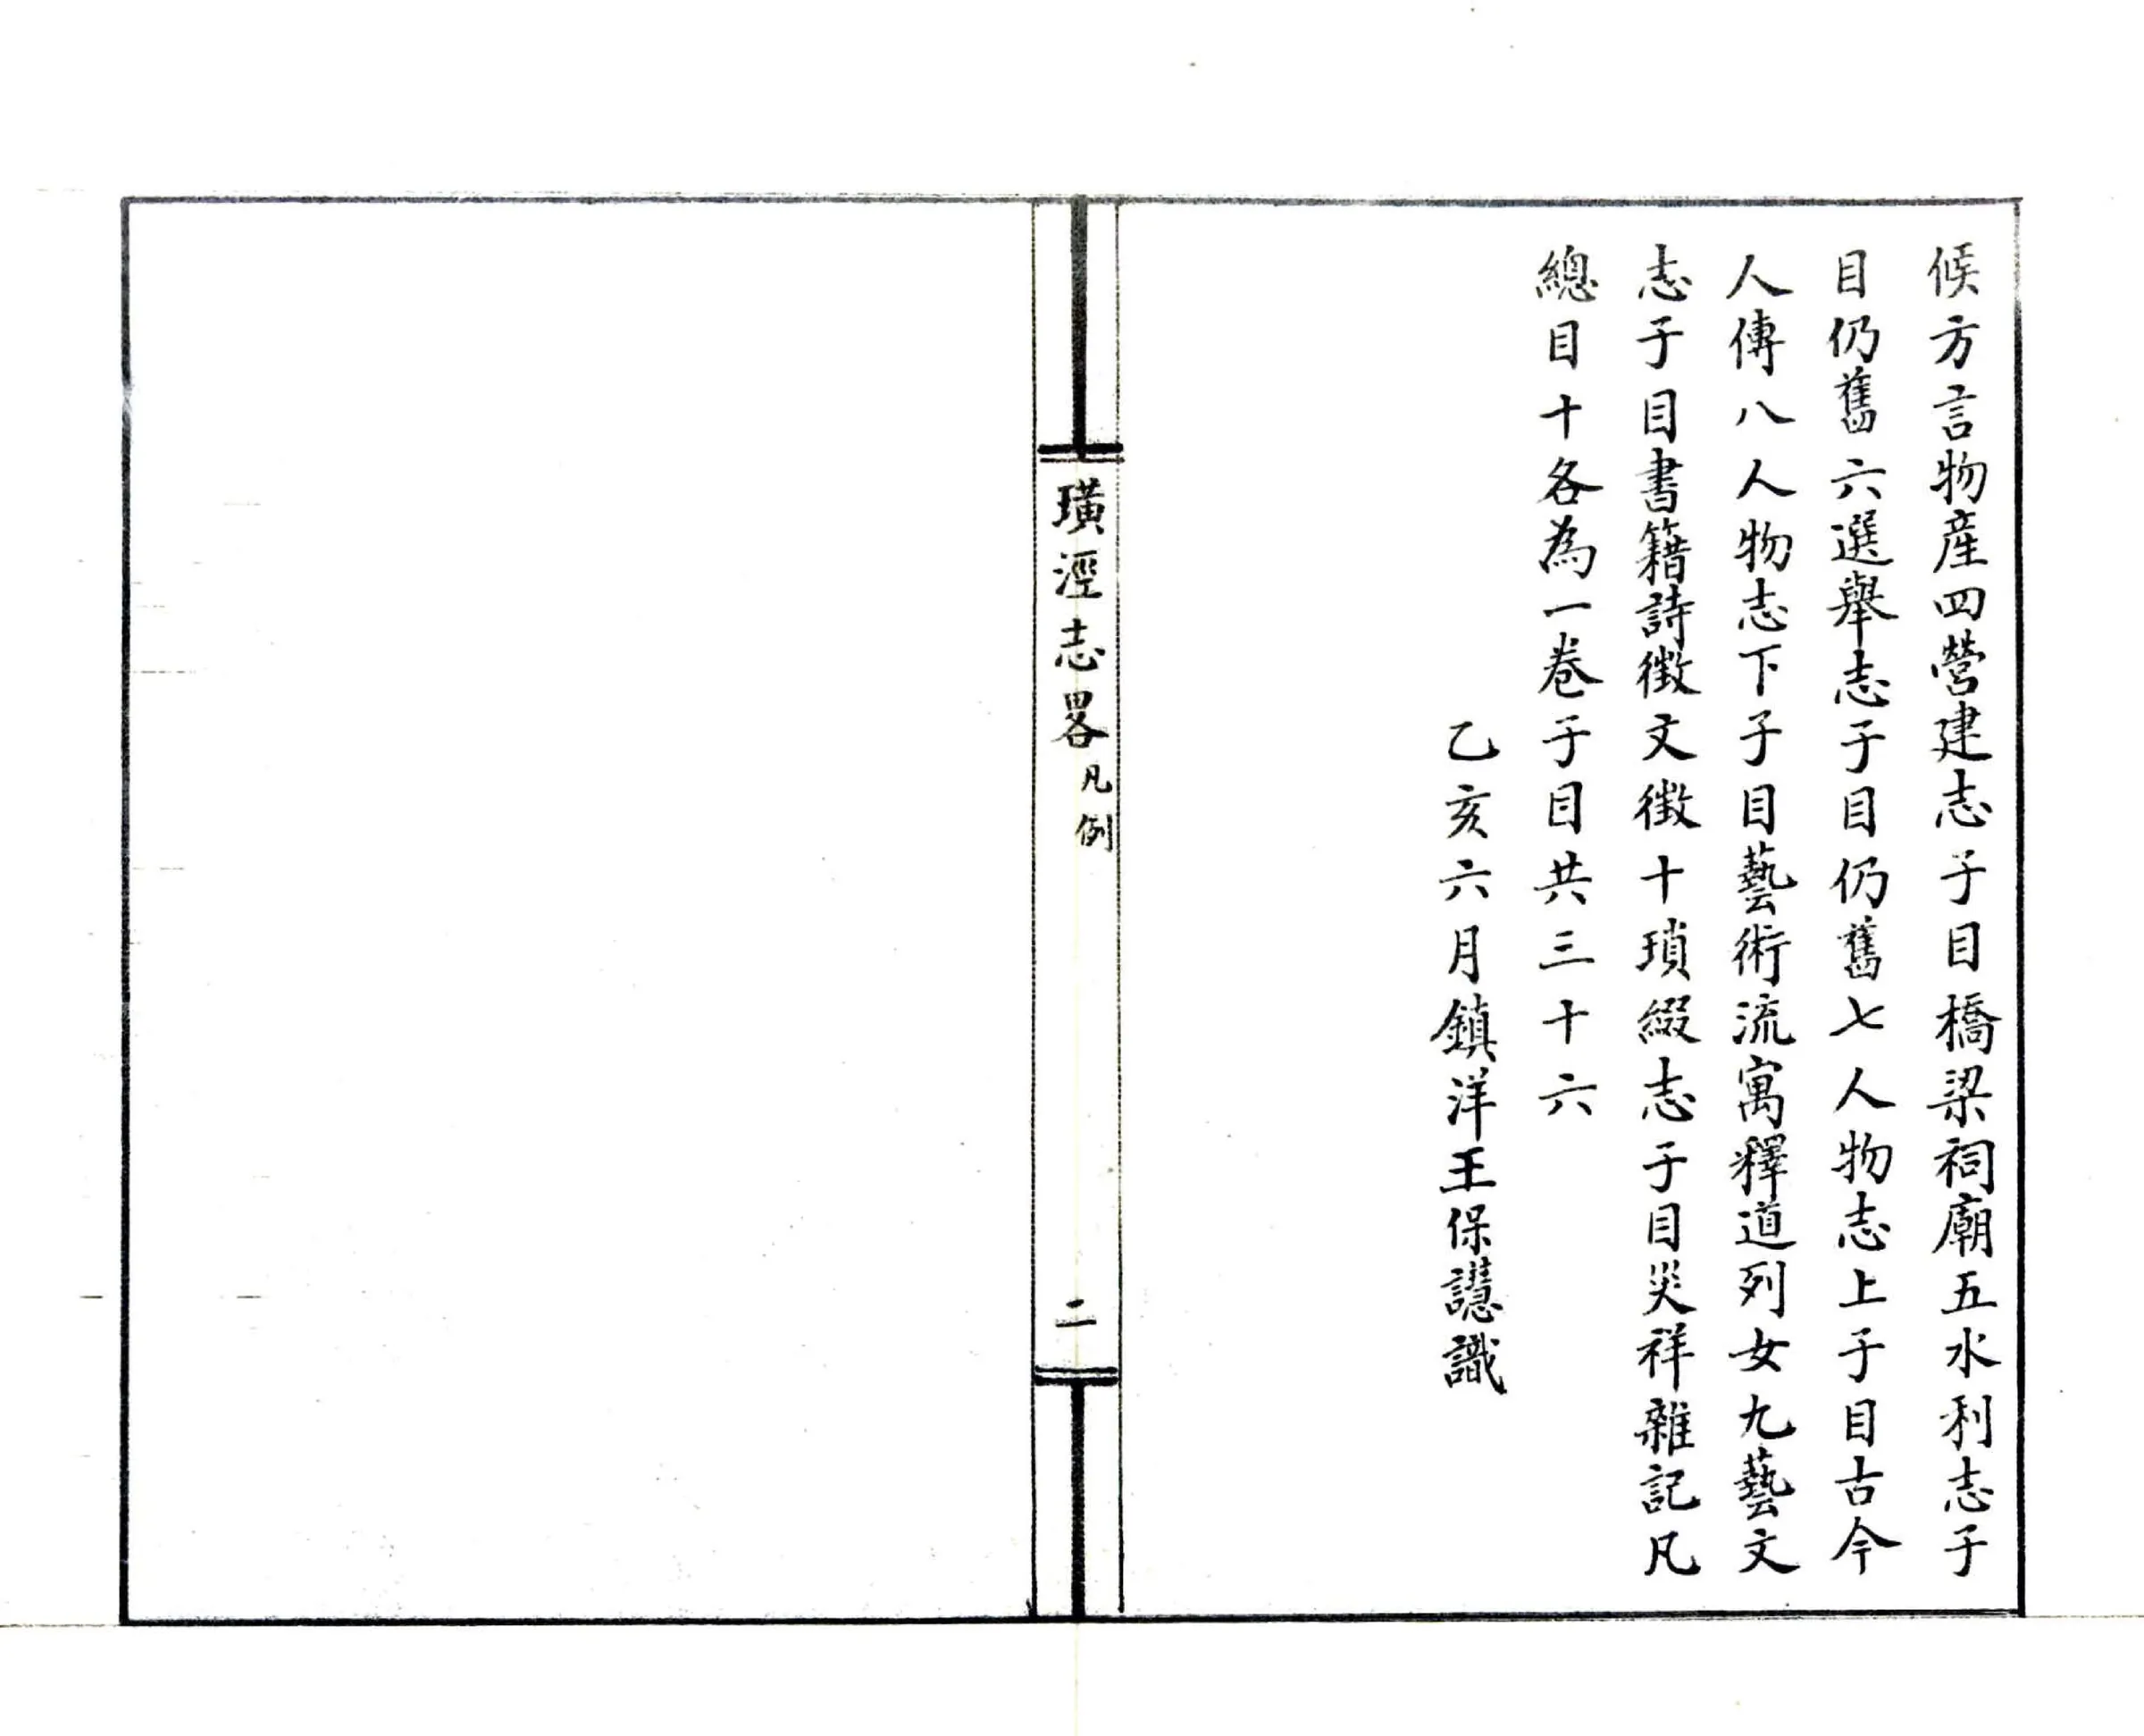 候方言物産四營建志子目橋梁祠廟五水利志子
目仍舊六選舉志子目仍舊七人物志上子目古今
人傳八人物志下子目藝術流寓釋道列女九藝文
志子目書籍詩徵文徵十瑣綴志子目災祥雜記凡
總目十各為一卷子目共三十六
乙亥六月鎮洋王保譿識
璜涇志畧凡例
二